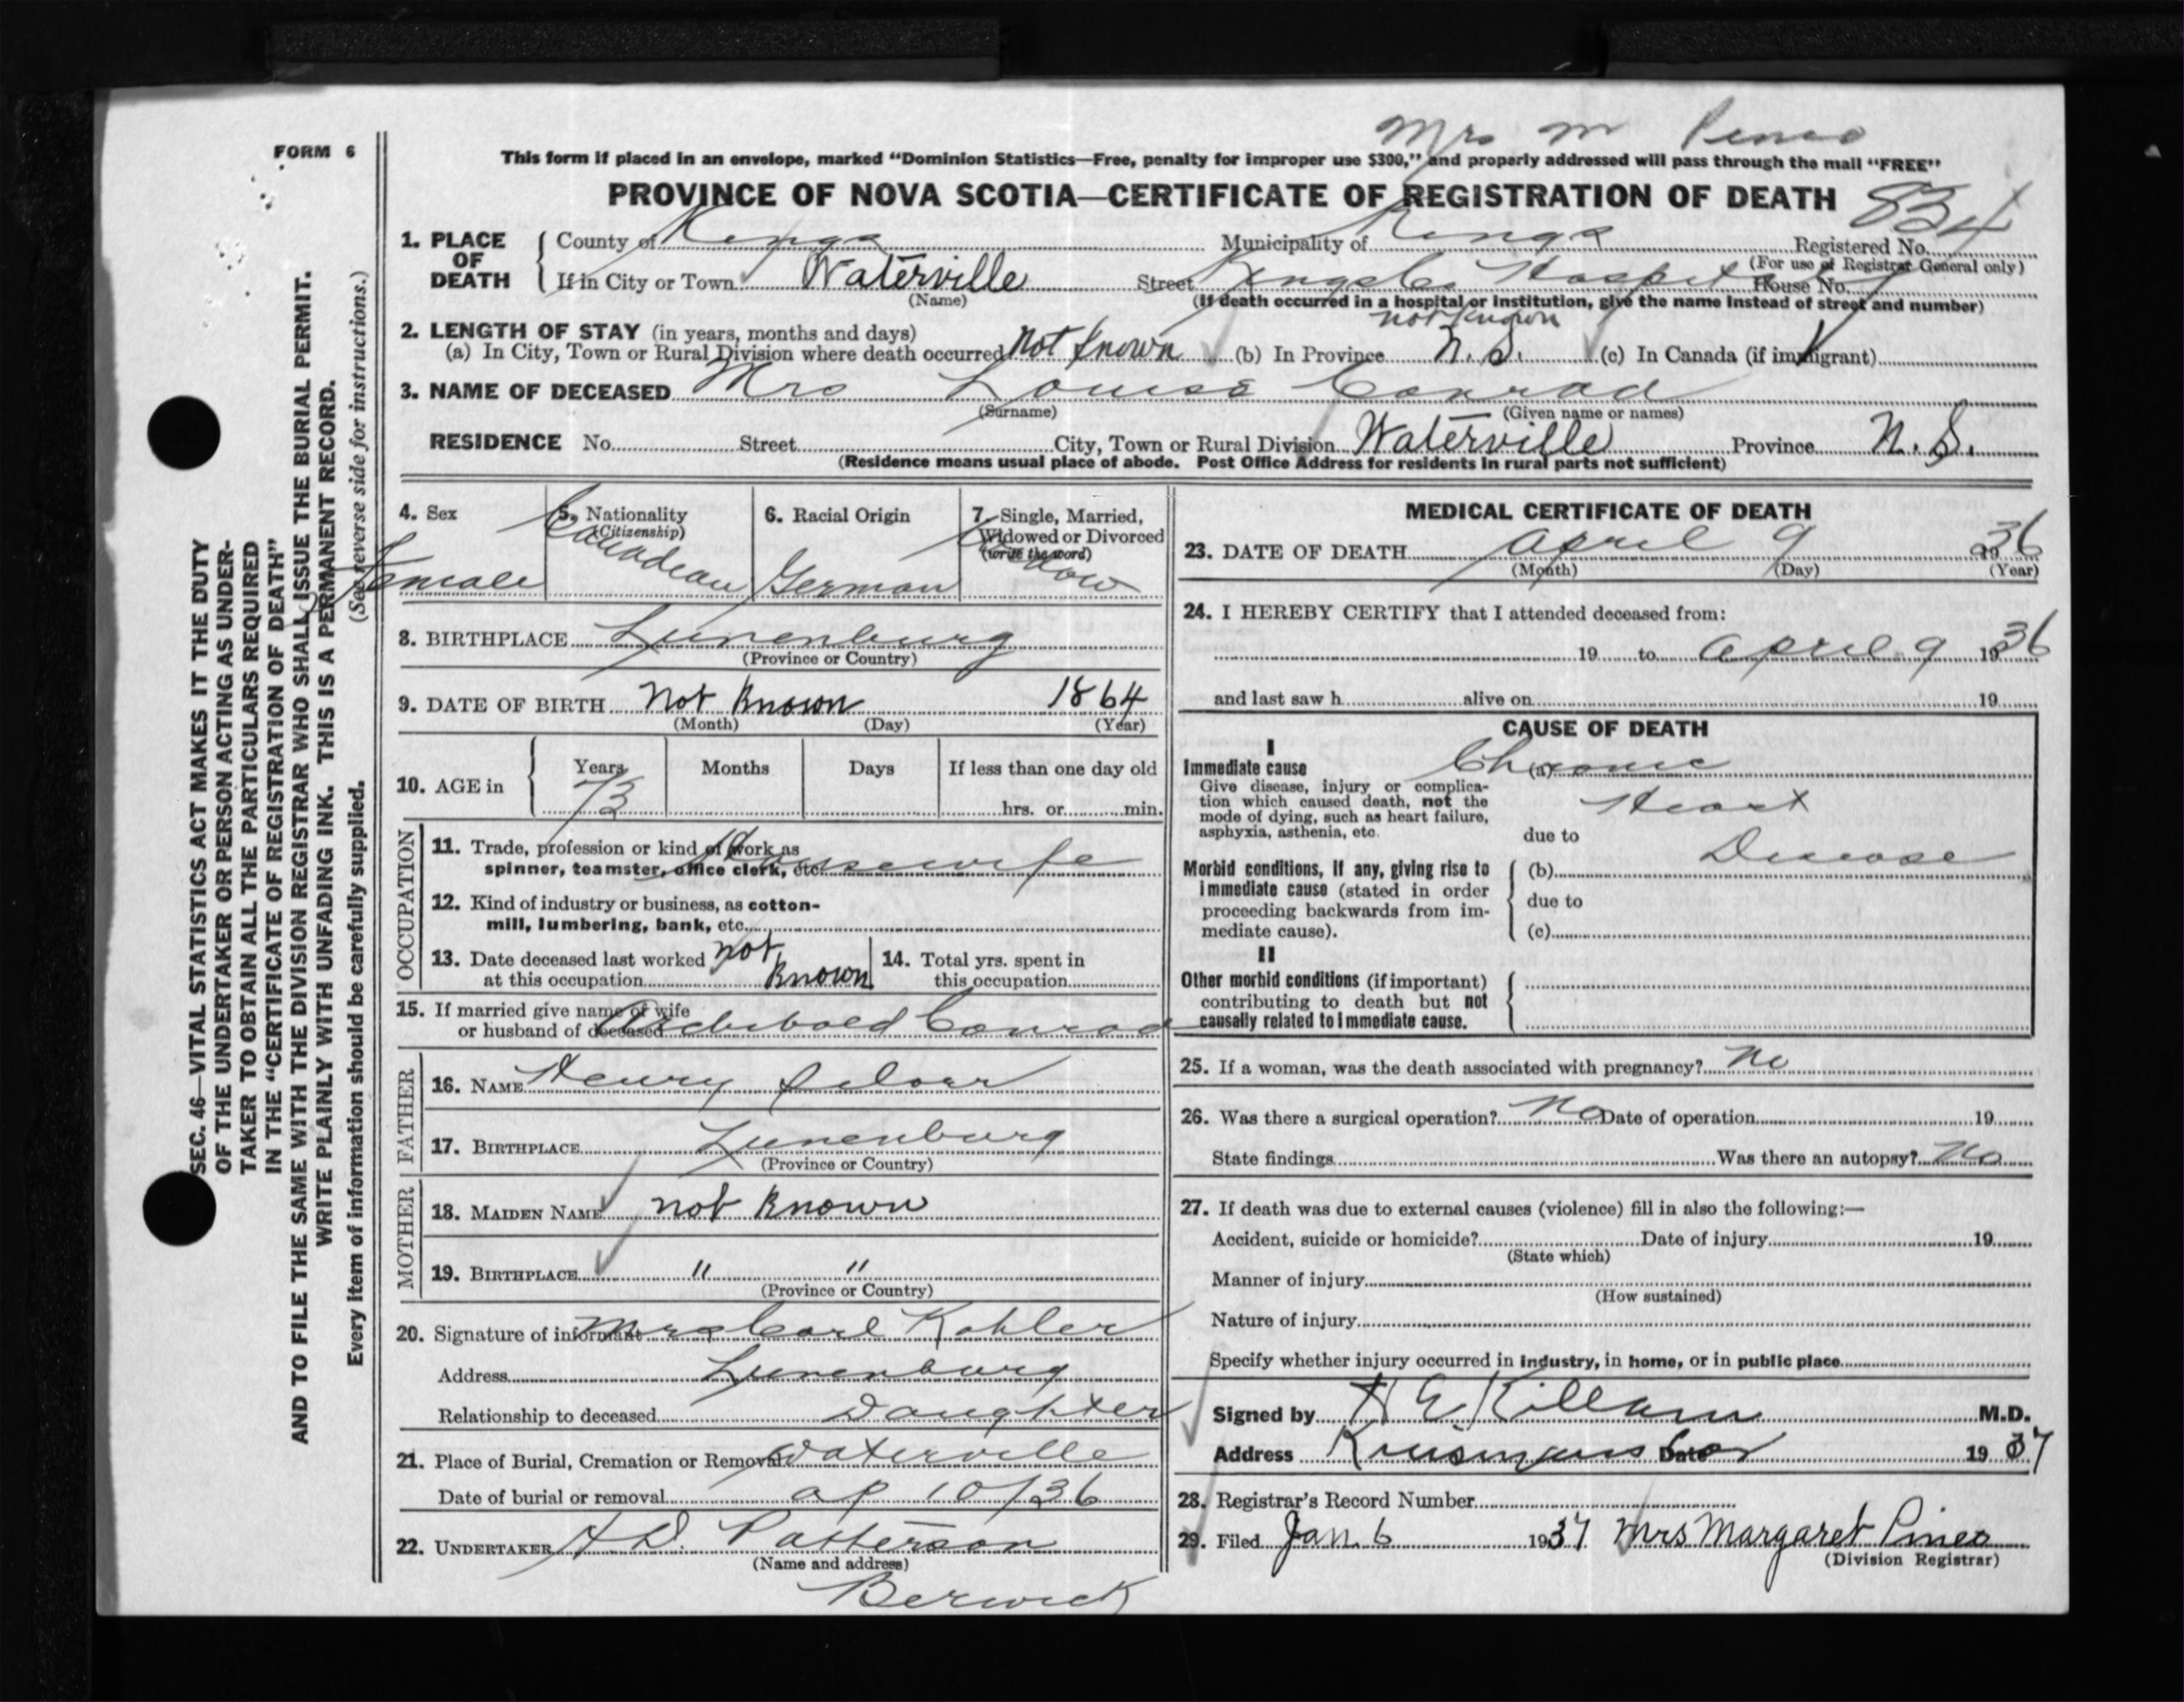 Mrs M Pineo
FORM 6
This form if placed in an envelope, marked "Dominion Statistics—Free, penalty for improper use $300," and properly addressed will pass through the mail "FREE"
PROVINCE OF NOVA SCOTIA—CERTIFICATE OF REGISTRATION OF DEATH
834
1. PLACE OF DEATH County of Kings Municipality of Kings Registered No.
(For use of Registrar General only)
If in City or Town Waterville Street Kings Co. Hospital House No.
(Name) (If death occurred in a hospital or institution, give the name instead of street and number)
2. LENGTH OF STAY (in years, months and days) not known
(a) In City, Town or Rural Division where death occurred Not known (b) In Province N. S. (c) In Canada (if immigrant)
3. NAME OF DECEASED Mrs Louise Conrad
(Surname) (Given name or names)
RESIDENCE No. Street City, Town or Rural Division Waterville Province N. S.
(Residence means usual place of abode. Post Office Address for residents in rural parts not sufficient)
4. Sex Female
5. Nationality (Citizenship) Canadean
6. Racial Origin German
7. Single, Married, Widowed or Divorced (write the word) Widow
8. BIRTHPLACE Lunenburg
(Province or Country)
9. DATE OF BIRTH Not Known 1864
(Month) (Day) (Year)
10. AGE in Years Months Days If less than one day old
73 hrs. or min.
OCCUPATION
11. Trade, profession or kind of work as
spinner, teamster, office clerk, etc. Housewife
12. Kind of industry or business, as cotton-
mill, lumbering, bank, etc.
13. Date deceased last worked at this occupation not Known
14. Total yrs. spent in this occupation
15. If married give name of wife
or husband of deceased Archibald Conrad
FATHER
16. NAME Henry
17. BIRTHPLACE Lunenburg
(Province or Country)
MOTHER
18. MAIDEN NAME not Known
19. BIRTHPLACE " "
(Province or Country)
20. Signature of informant Mrs Carl Kohler
Address Lunenburg
Relationship to deceased Daughter
21. Place of Burial, Cremation or Removal Waterville
Date of burial or removal ap 10/36
22. UNDERTAKER A D. Patterson
(Name and address)
Berwick
MEDICAL CERTIFICATE OF DEATH
23. DATE OF DEATH April 9 1936
(Month) (Day) (Year)
24. I HEREBY CERTIFY that I attended deceased from:
19 to April 9 1936
and last saw h alive on 19
CAUSE OF DEATH
I
Immediate cause (a) Chronic
Give disease, injury or complica-
tion which caused death, not the Heart
mode of dying, such as heart failure,
asphyxia, asthenia, etc. due to
Disease
Morbid conditions, if any, giving rise to (b)
immediate cause (stated in order
proceeding backwards from im- due to
mediate cause). (c)
II
Other morbid conditions (if important)
contributing to death but not
causally related to immediate cause.
25. If a woman, was the death associated with pregnancy? No
26. Was there a surgical operation? No Date of operation 19
State findings Was there an autopsy? No
27. If death was due to external causes (violence) fill in also the following:—
Accident, suicide or homicide? Date of injury 19
(State which)
Manner of injury
(How sustained)
Nature of injury
Specify whether injury occurred in industry, in home, or in public place
Signed by H E Killam M.D.
Address Date 1937
28. Registrar's Record Number
29. Filed Jan. 6 1937 Mrs Margaret Pineo
(Division Registrar)
SEC. 46—VITAL STATISTICS ACT MAKES IT THE DUTY
OF THE UNDERTAKER OR PERSON ACTING AS UNDER-
TAKER TO OBTAIN ALL THE PARTICULARS REQUIRED
IN THE "CERTIFICATE OF REGISTRATION OF DEATH"
AND TO FILE THE SAME WITH THE DIVISION REGISTRAR WHO SHALL ISSUE THE BURIAL PERMIT.
WRITE PLAINLY WITH UNFADING INK. THIS IS A PERMANENT RECORD.
Every item of information should be carefully supplied. (See reverse side for instructions.)